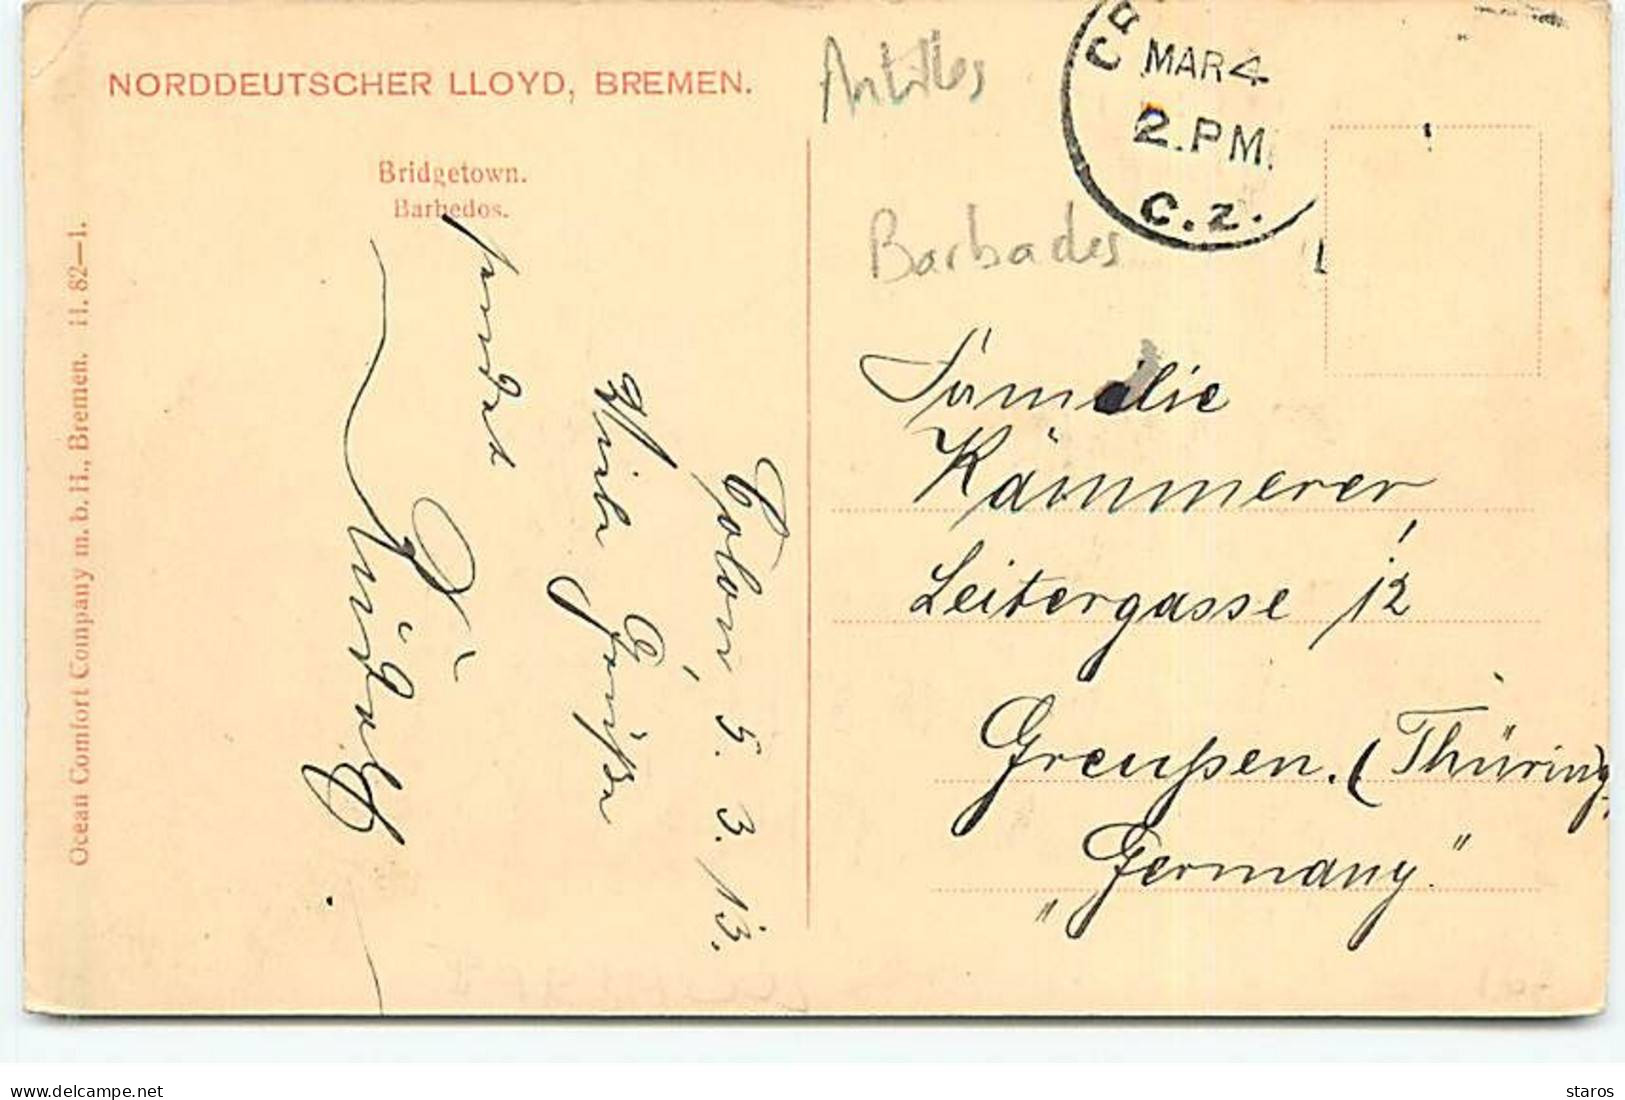 NORDDEUTSCHER LLOYD, BREMEN.
Bridgetown.
Barbedos.
Ocean Comfort Company m. b. H., Bremen. H. 82—1.
Colon, 5. 3. 13.
Viele Grüße
sendet
Rudolf.
Antilles
Barbades
CR
MAR 4
2. PM.
C. Z.
Familie
Kämmerer
Leitergasse 12
Greußen. (Thüring
„Germany."
delcampe.net
staros